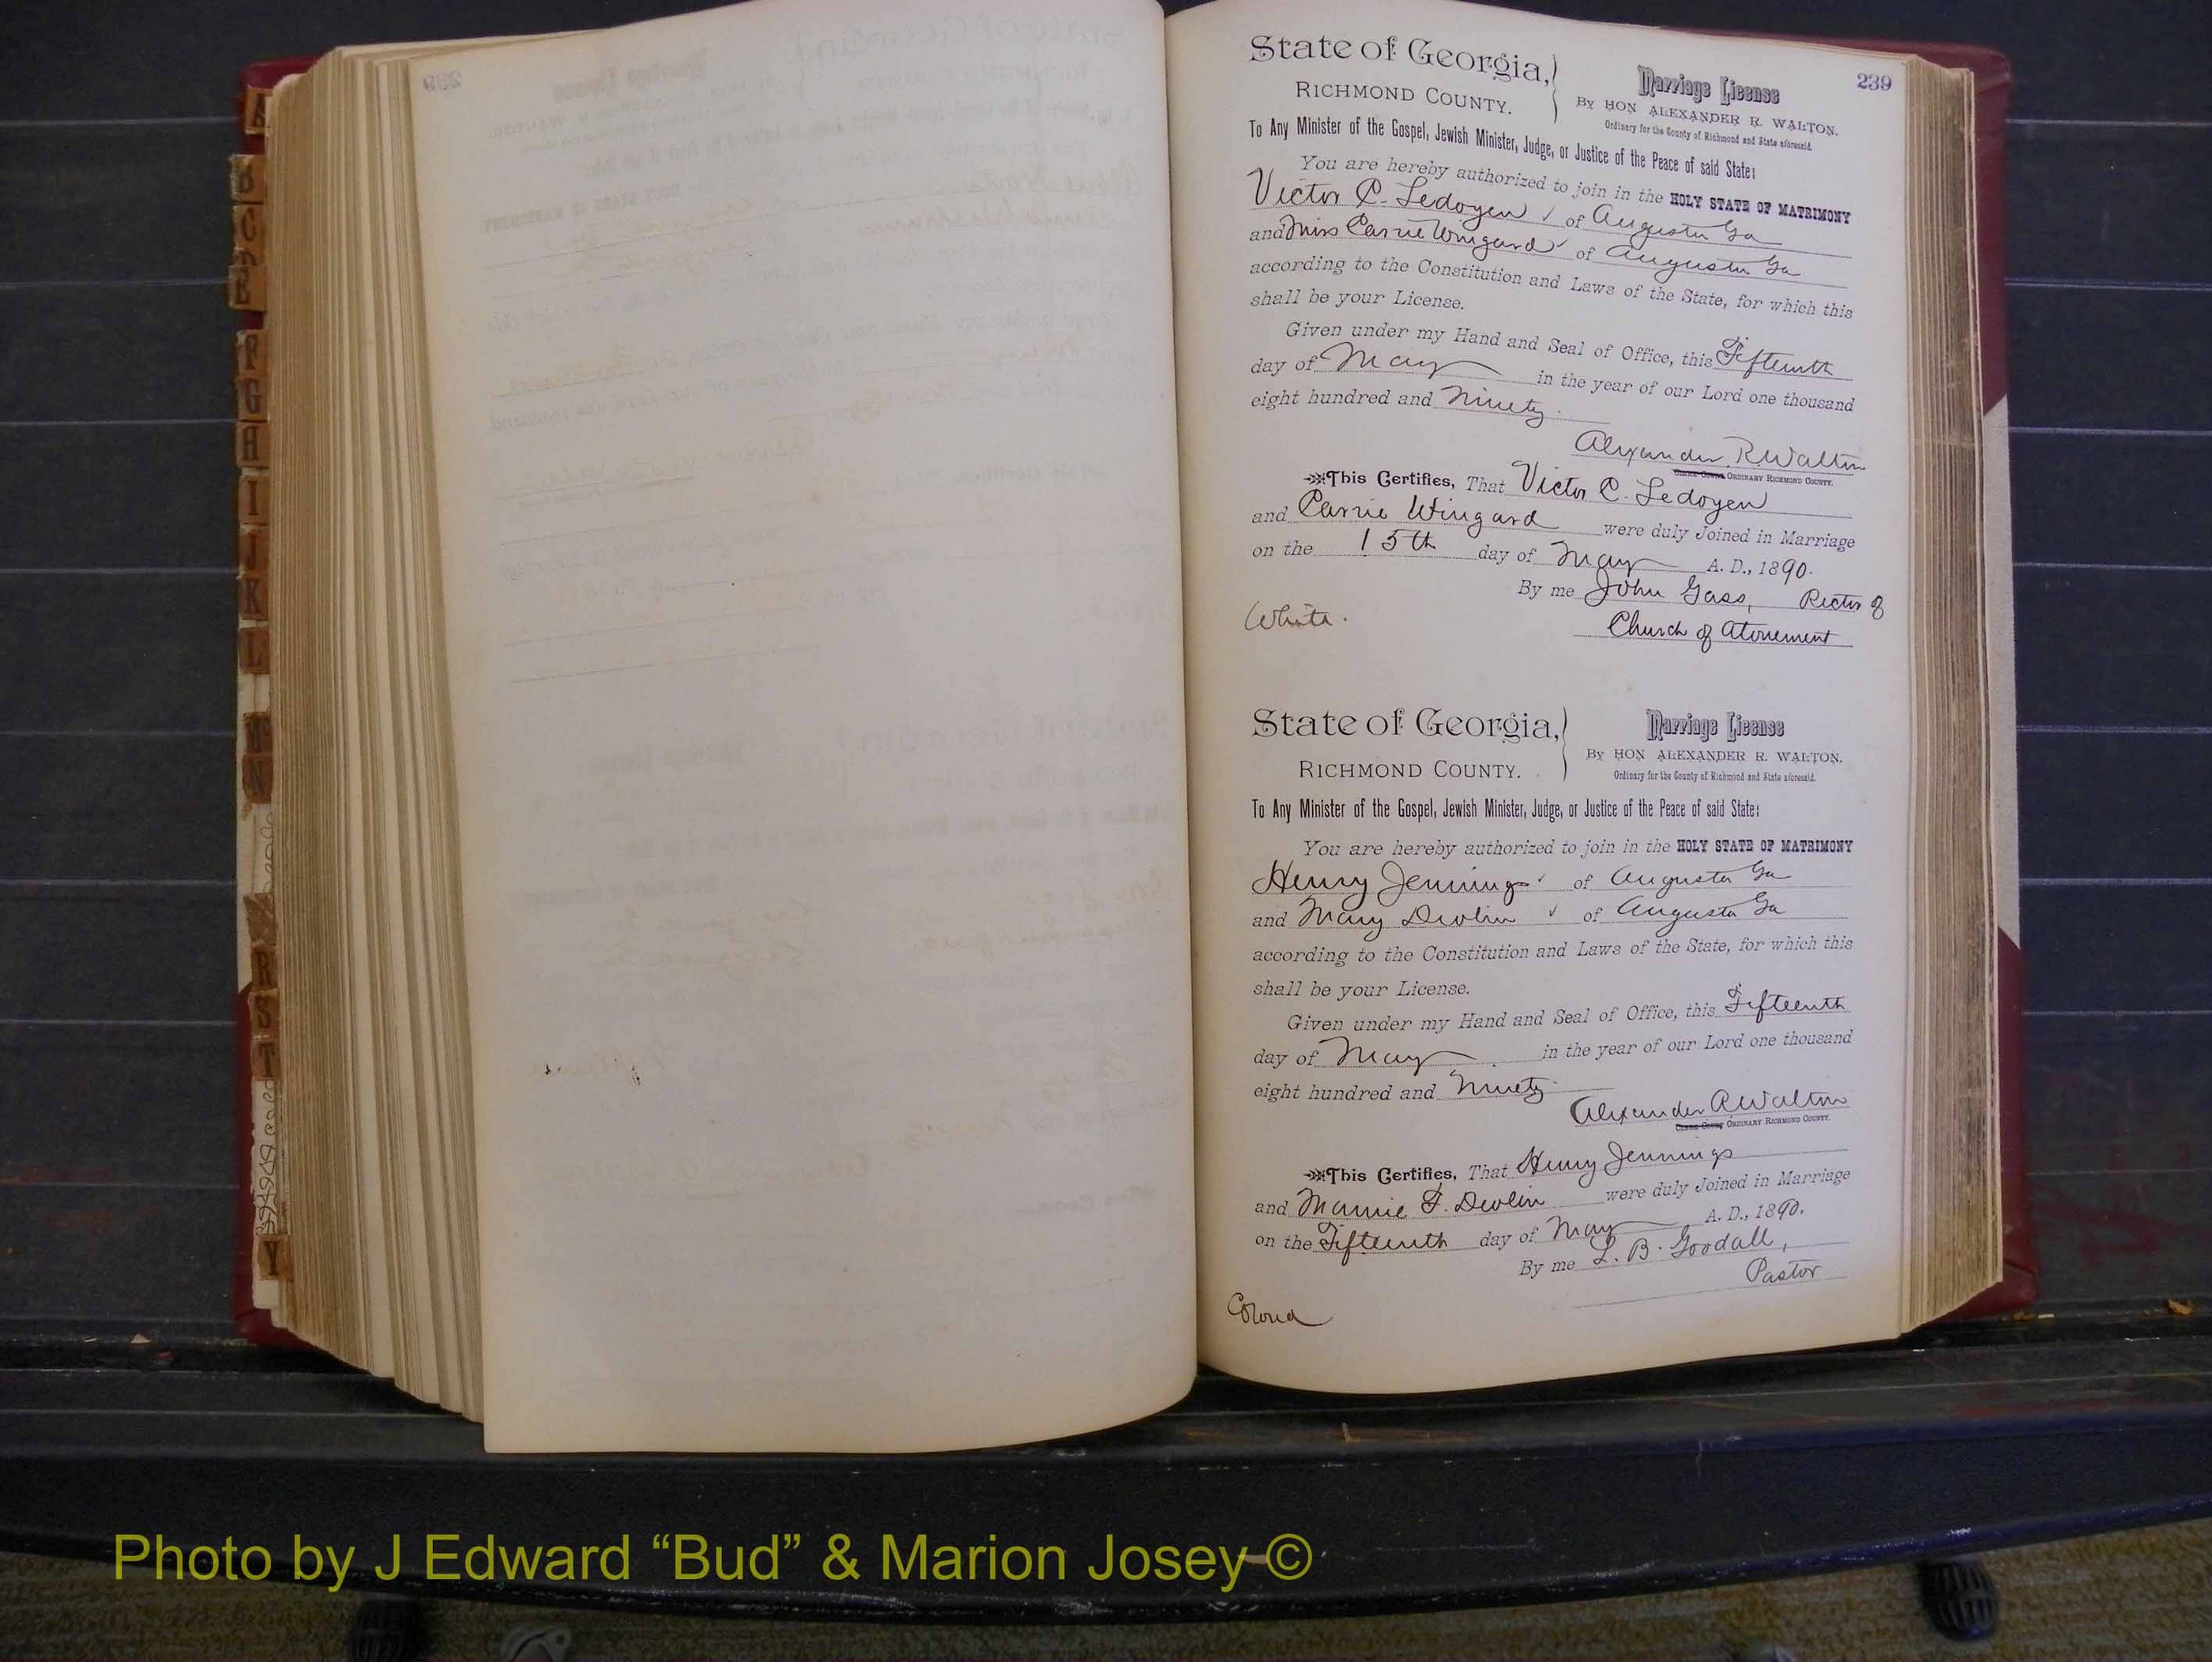 239
State of Georgia,
RICHMOND COUNTY.
Marriage License
By HON ALEXANDER R. WALTON.
Ordinary for the County of Richmond and State aforesaid.
To Any Minister of the Gospel, Jewish Minister, Judge, or Justice of the Peace of said State:
You are hereby authorized to join in the HOLY STATE OF MATRIMONY
Victor C. Ledoyen ✓ of Augusta Ga
and Miss Carrie Wingard ✓ of Augusta Ga
according to the Constitution and Laws of the State, for which this
shall be your License.
Given under my Hand and Seal of Office, this Fifteenth
day of May in the year of our Lord one thousand
eight hundred and Ninety.
Alexander R Walton
ORDINARY RICHMOND COUNTY.
This Certifies, That Victor C. Ledoyen
and Carrie Wingard were duly Joined in Marriage
on the 15th day of May A. D., 1890.
By me John Gass, Rector of
Church of Atonement
White.
State of Georgia,
RICHMOND COUNTY.
Marriage License
By HON ALEXANDER R. WALTON.
Ordinary for the County of Richmond and State aforesaid.
To Any Minister of the Gospel, Jewish Minister, Judge, or Justice of the Peace of said State:
You are hereby authorized to join in the HOLY STATE OF MATRIMONY
Henry Jennings ✓ of Augusta Ga
and Mary Devlin ✓ of Augusta Ga
according to the Constitution and Laws of the State, for which this
shall be your License.
Given under my Hand and Seal of Office, this Fifteenth
day of May in the year of our Lord one thousand
eight hundred and Ninety
Alexander R Walton
ORDINARY RICHMOND COUNTY.
This Certifies, That Henry Jennings
and Mamie F. Devlin were duly Joined in Marriage
on the Fifteenth day of May A. D., 1890.
By me L. B. Goodall,
Pastor
Colored
Photo by J Edward “Bud” & Marion Josey ©